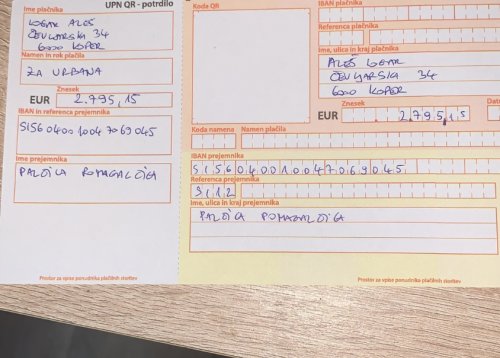 UPN QR - potrdilo
Ime plačnika
LOGAR ALEŠ
ČEVLJARSKA 34
6000 KOPER
Namen in rok plačila
ZA URBANA
Znesek
EUR 2.795,15
IBAN in referenca prejemnika
SI56 0400 1004 7069 045
Ime prejemnika
PALČICA POMAGALČICA
Prostor za vpise ponudnika plačilnih storitev
Koda QR
IBAN plačnika
Referenca plačnika
Ime, ulica in kraj plačnika
ALEŠ LOGAR
ČEVLJARSKA 34
6000 KOPER
Znesek
EUR 2.795,15
Koda namena Namen plačila
IBAN prejemnika
SI56040010047069045
Referenca prejemnika
SI12
Ime, ulica in kraj prejemnika
PALČICA POMAGALČICA
Prostor za vpise ponudnika plačilnih storitev